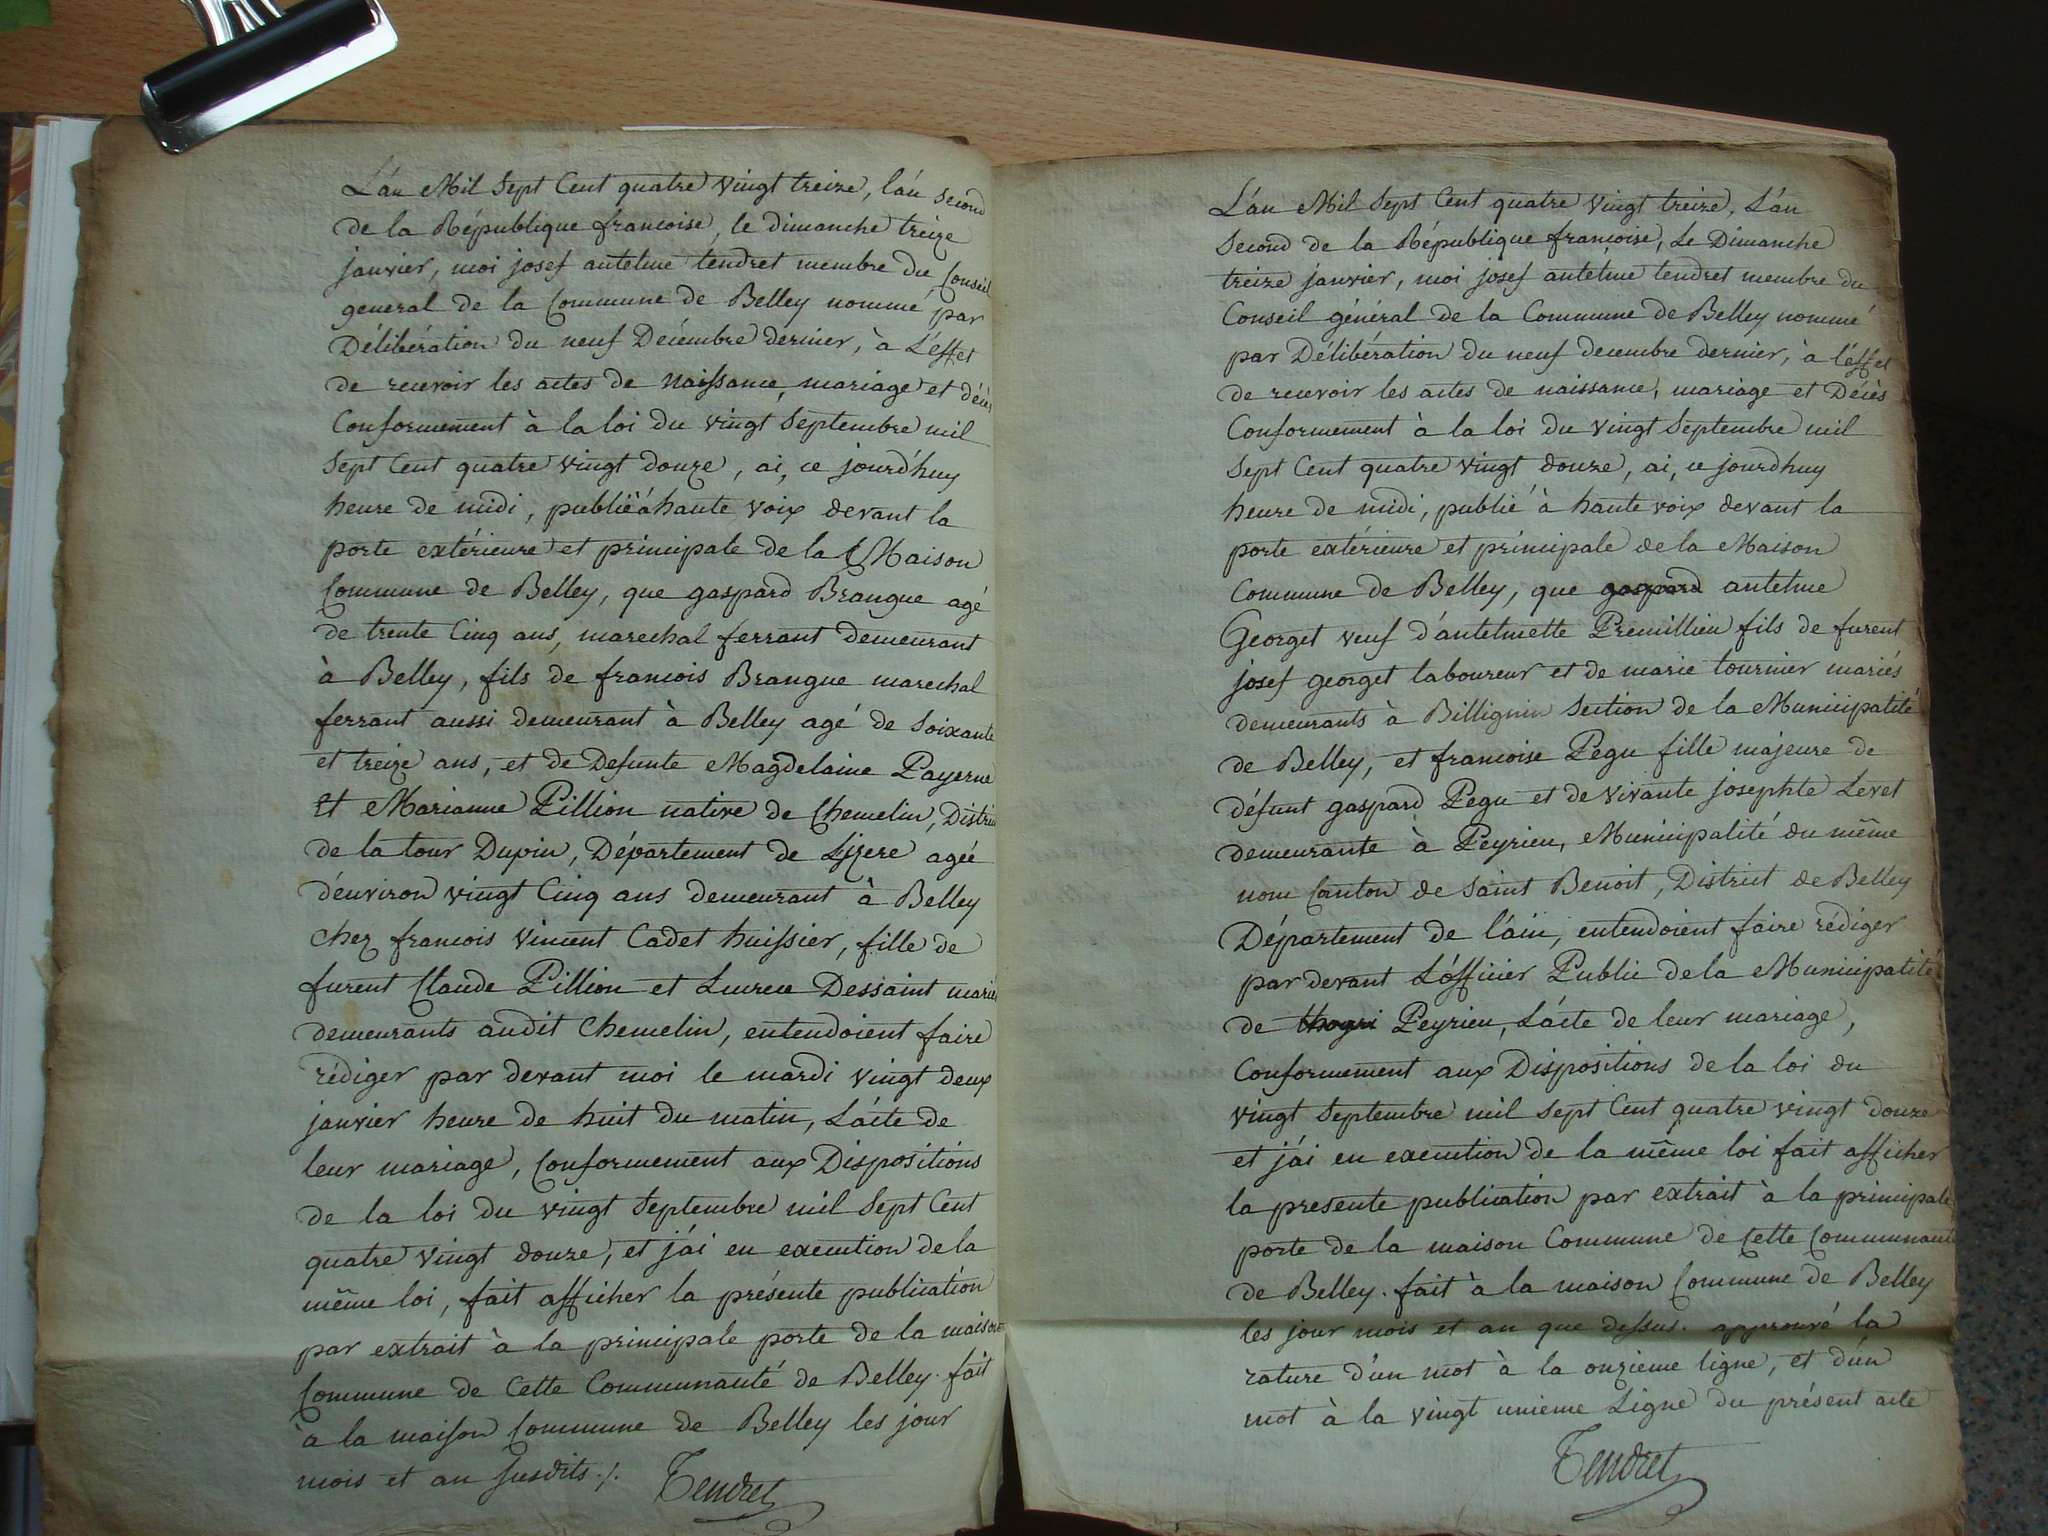 L'an Mil Sept Cent quatre vingt treize, l'an second
de la République francoise, le dimanche treize
janvier, moi josef antelme tendret membre du Conseil
general de la Commune de Belley nommé par
Délibération du neuf Décembre dernier, à L'effet
de recevoir les actes de Naissance, mariage et décès
Conformement à la loi du vingt Septembre mil
Sept Cent quatre vingt douze, ai, ce jourd'huy
heure de midi, publié à haute voix devant la
porte extérieure et principale de la Maison
Commune de Belley, que gaspard Brangue agé
de trente Cinq ans, marechal ferrant demeurant
à Belley, fils de francois Brangue marechal
ferrant aussi demeurant à Belley agé de Soixante
et treize ans, et de Defunte Magdelaine Payerne
Et Marianne Pillion native de Chemelin, District
de la tour Dupin, Département de Lizere agée
d'environ vingt Cinq ans demeurant à Belley
Chez francois Vincent Cadet huissier, fille de
furent Claude Pillion et Lucrece Dessaint mariés
demeurants audit Chemelin, entendoient faire
rédiger par devant moi le mardi vingt deux
janvier heure de huit du matin, L'acte de
leur mariage, Conformement aux Dispositions
de la loi du vingt Septembre mil Sept Cent
quatre vingt douze, et j'ai en execution de la
même loi, fait afficher la présente publication
par extrait à la principale porte de la maison
Commune de Cette Communauté de Belley. fait
à la maison Commune de Belley les jour
mois et an Susdits ./. Tendret
L'an Mil Sept Cent quatre vingt treize, L'an
Second de la République françoise, Le Dimanche
treize janvier, moi josef antelme tendret membre du
Conseil général de la Commune de Belley nommé
par Délibération du neuf decembre dernier, à l'effet
de recevoir les actes de naissance, mariage et Décès
Conformement à la loi du vingt Septembre mil
Sept Cent quatre vingt douze, ai, ce jourdhuy
heure de midi, publié à haute voix devant la
porte extérieure et principale de la Maison
Commune de Belley, que gaspard antelme
Georget veuf d'antelmette Premillieu fils de furent
josef georget laboureur et de marie tournier mariés
demeurants à Billignin Section de la Municipalité
de Belley, et francoise Pegu fille majeure de
défunt gaspard Pegu et de vivante josephte Levet
demeurante à Peyrieu, Municipalité du même
nom Canton de Saint Benoit, District de Belley
Département de l'ain, entendoient faire rédiger
par devant L'officier Public de la Municipalité
de Peyrieu, L'acte de leur mariage,
Conformement aux Dispositions de la loi du
vingt Septembre mil Sept Cent quatre vingt douze
et j'ai en execution de la même loi fait afficher
la presente publication par extrait à la principale
porte de la maison Commune de Cette Communauté
de Belley. fait à la maison Commune de Belley
les jour mois et an que dessus. approuvé la
rature d'un mot à la onzieme ligne, et d'un
mot à la vingt unieme Ligne du présent acte
Tendret